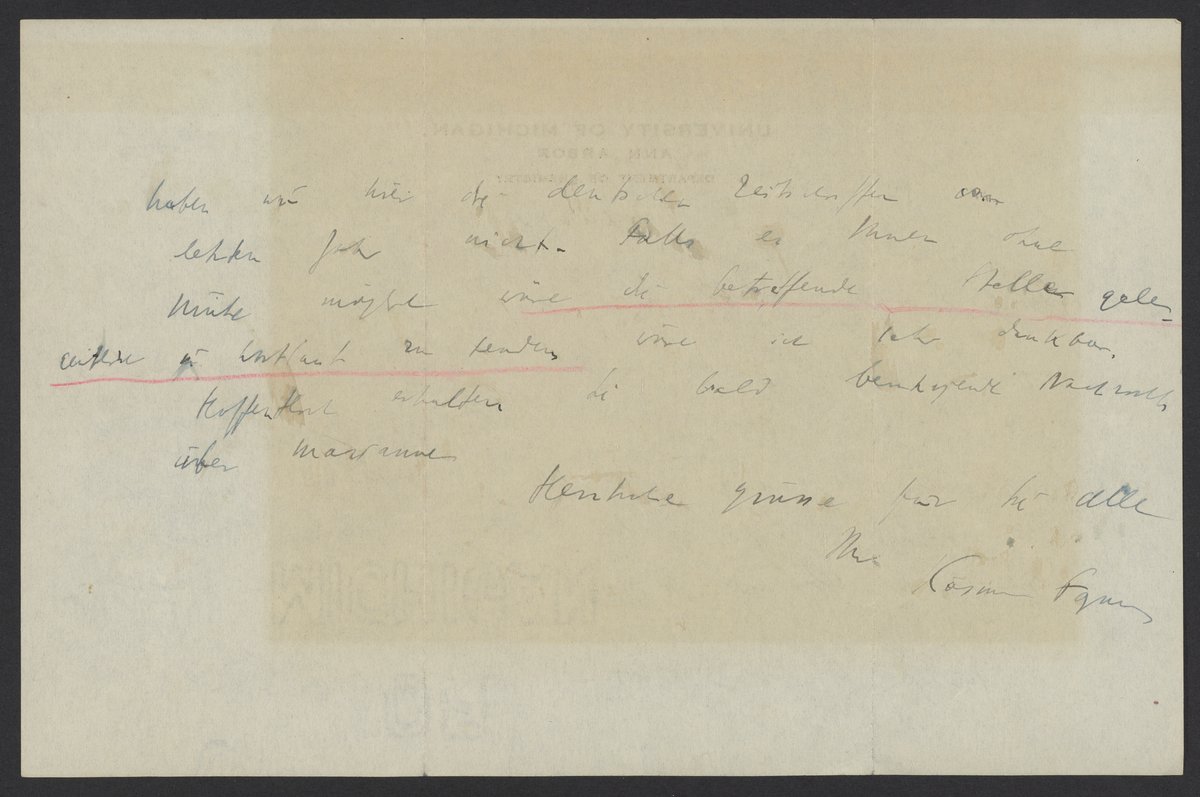 haben wir hier die deutschen Zeitschriften vom
letzten Jahr nicht. Falls es Ihnen ohne
Mühe möglich wäre die betreffende Stelle gele-
wörtlich zu senden wäre ich sehr dankbar.
Hoffentlich erhalten Sie bald beruhigende Nachricht
über Marianne
Herzliche Grüsse für Sie alle
Ihr
Kasimir Fajans
UNIVERSITY OF MICHIGAN
ANN ARBOR
DEPARTMENT OF CHEMISTRY